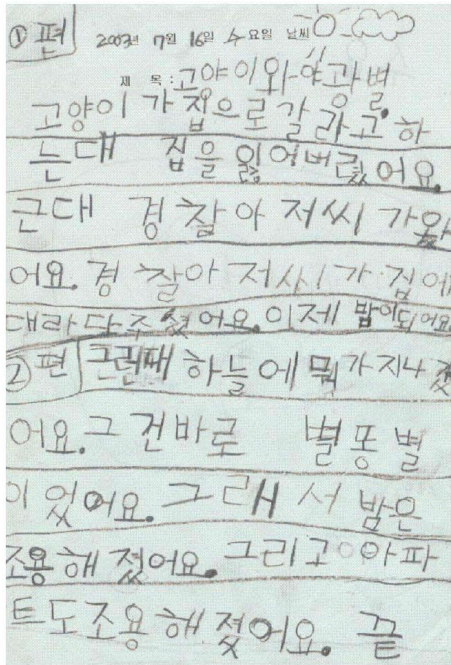 ①편 2003년 7월 16일 수요일 날씨
제 목: 고양이와 야광 별
고양이 가 집으로갈 라고 하
는대 집을 잃어버렸어요.
근대 경찰아저씨가왔
어요. 경찰아저씨가 집에
대라다주셨어요. 이제 밤이되어요
②편 근린대 하늘에 뭐가지나갔
어요. 그건바로 별똥별
이었어요. 그래서 밤은
조용해졌어요. 그리고 아파
트도조용해졌어요. 끝